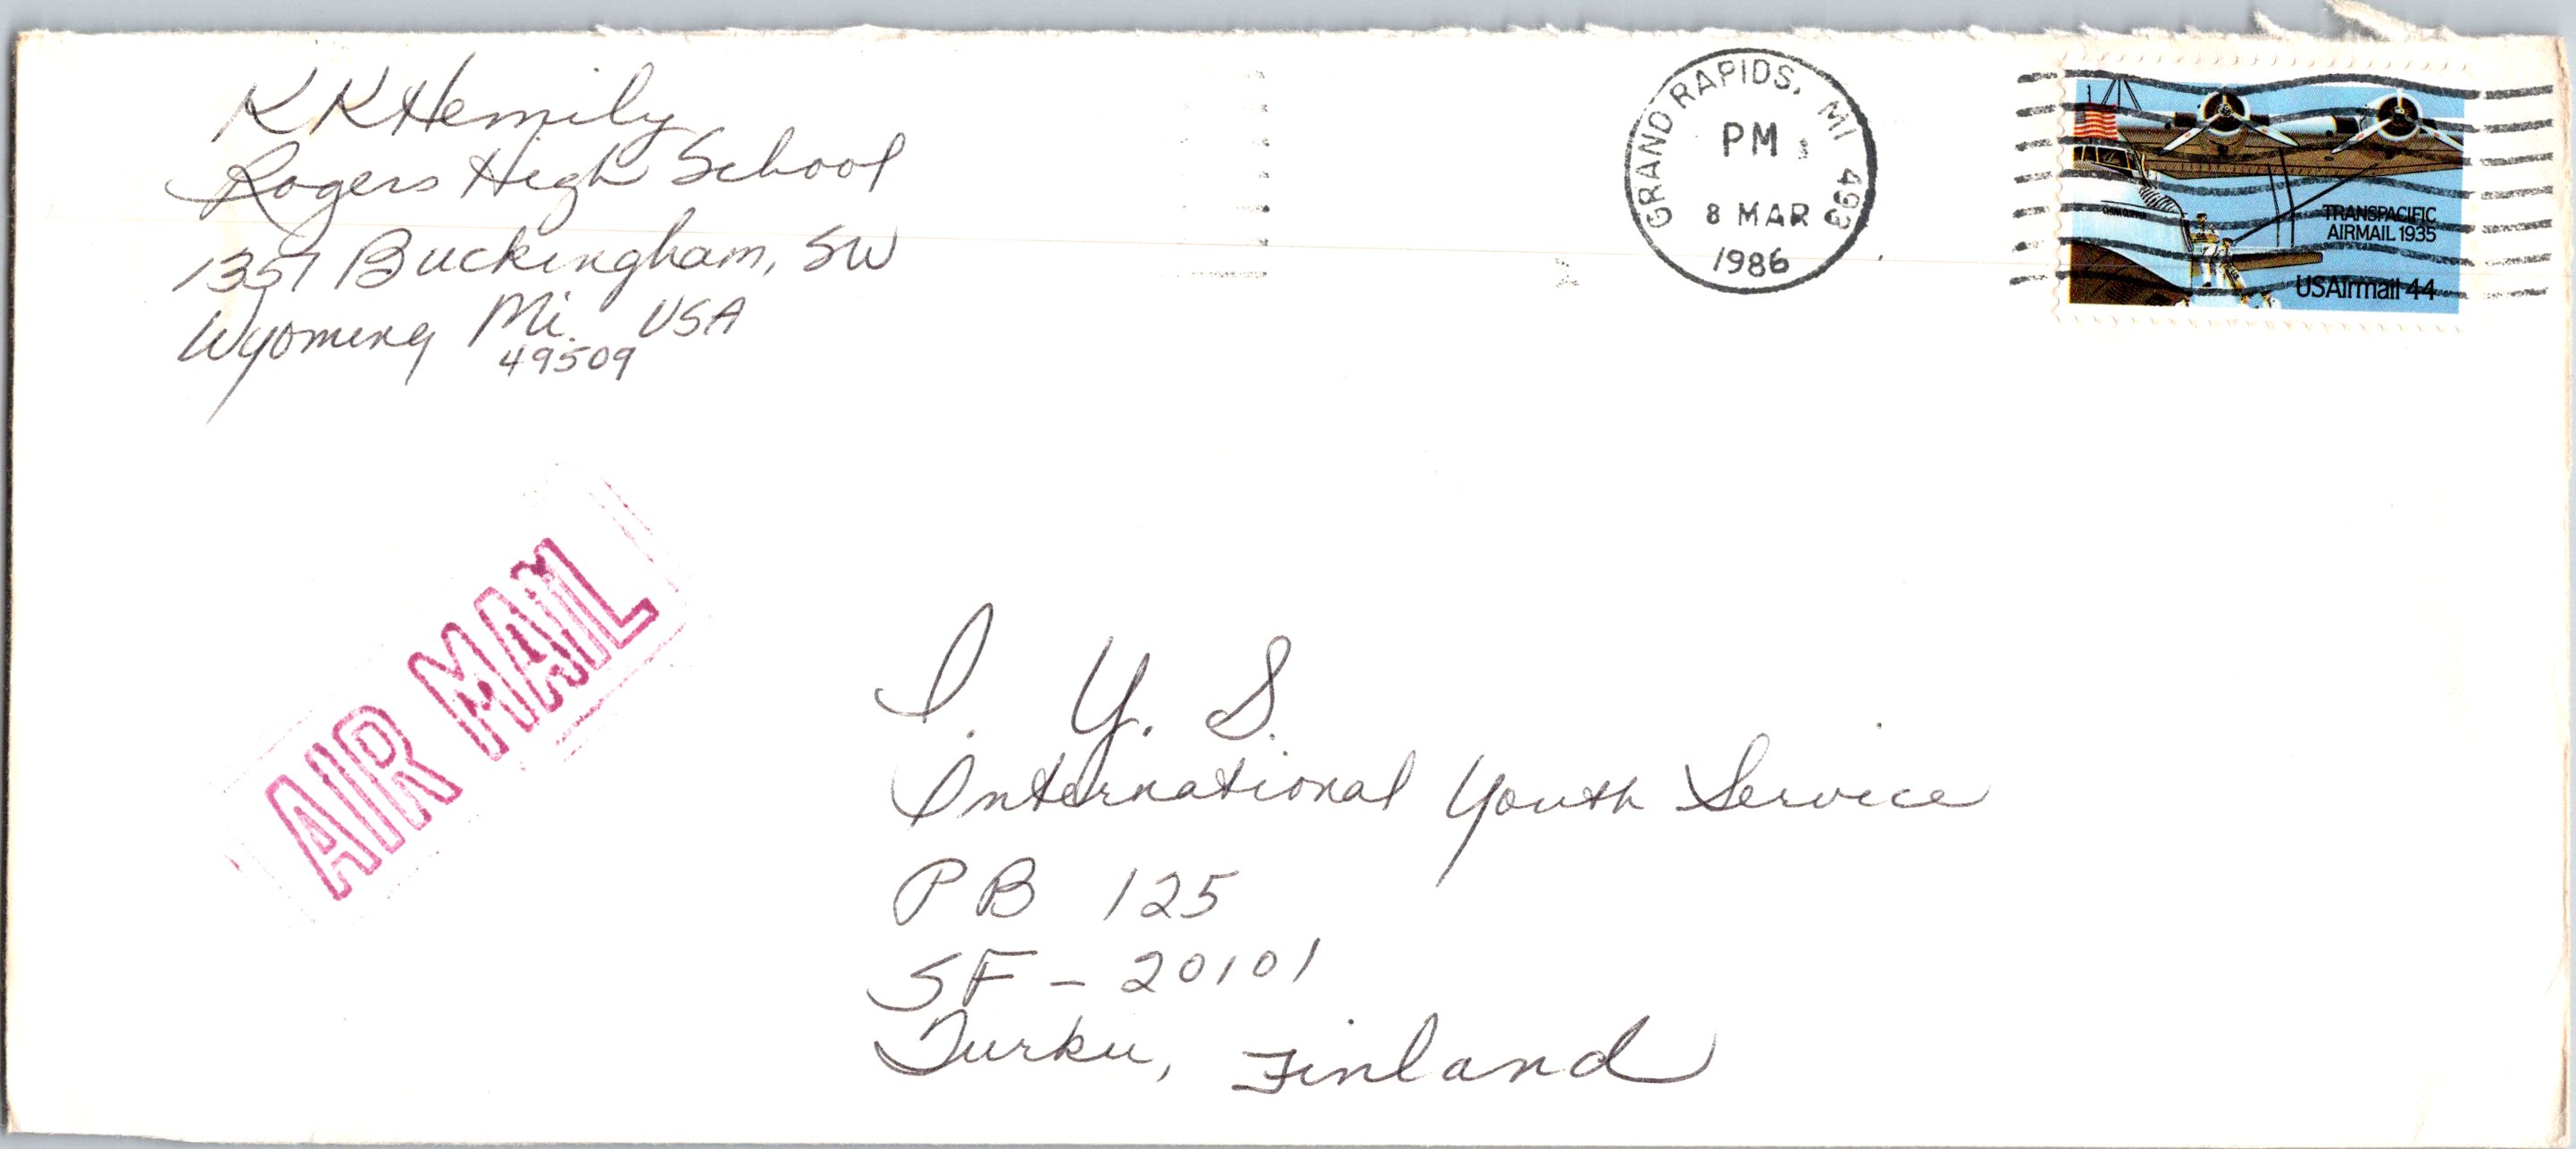 K K Hemily
Rogers High School
1357 Buckingham, SW
Wyoming Mi. USA
49509
GRAND RAPIDS, MI 493
PM
8 MAR
1986
TRANSPACIFIC
AIRMAIL 1935
USAirmail 44
AIR MAIL
I. Y. S.
International Youth Service
PB 125
SF - 20101
Turku, Finland